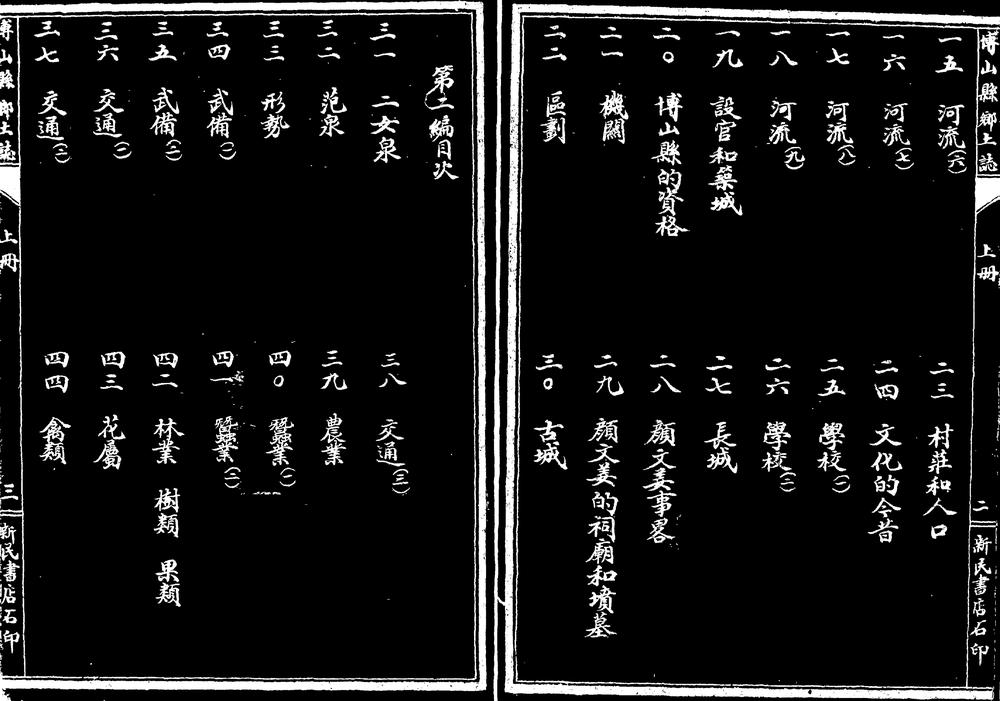 博山縣鄉土誌 上册 二 新民書店石印
一五 河流(六)
一六 河流(七)
一七 河流(八)
一八 河流(九)
一九 設官和築城
二〇 博山縣的資格
二一 機關
二二 區劃
二三 村莊和人口
二四 文化的今昔
二五 學校(一)
二六 學校(二)
二七 長城
二八 顏文姜事畧
二九 顏文姜的祠廟和墳墓
三〇 古城
第二編目次
三一 二女泉
三二 范泉
三三 形勢
三四 武備(一)
三五 武備(二)
三六 交通(一)
三七 交通(二)
三八 交通(三)
三九 農業
四〇 蠶業(一)
四一 蠶業(二)
四二 林業 樹類 果類
四三 花屬
四四 禽類
博山縣鄉土誌 上册 三 新民書店石印